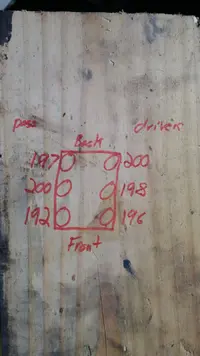 pass driver
Back
197 200
200 198
192 196
Front